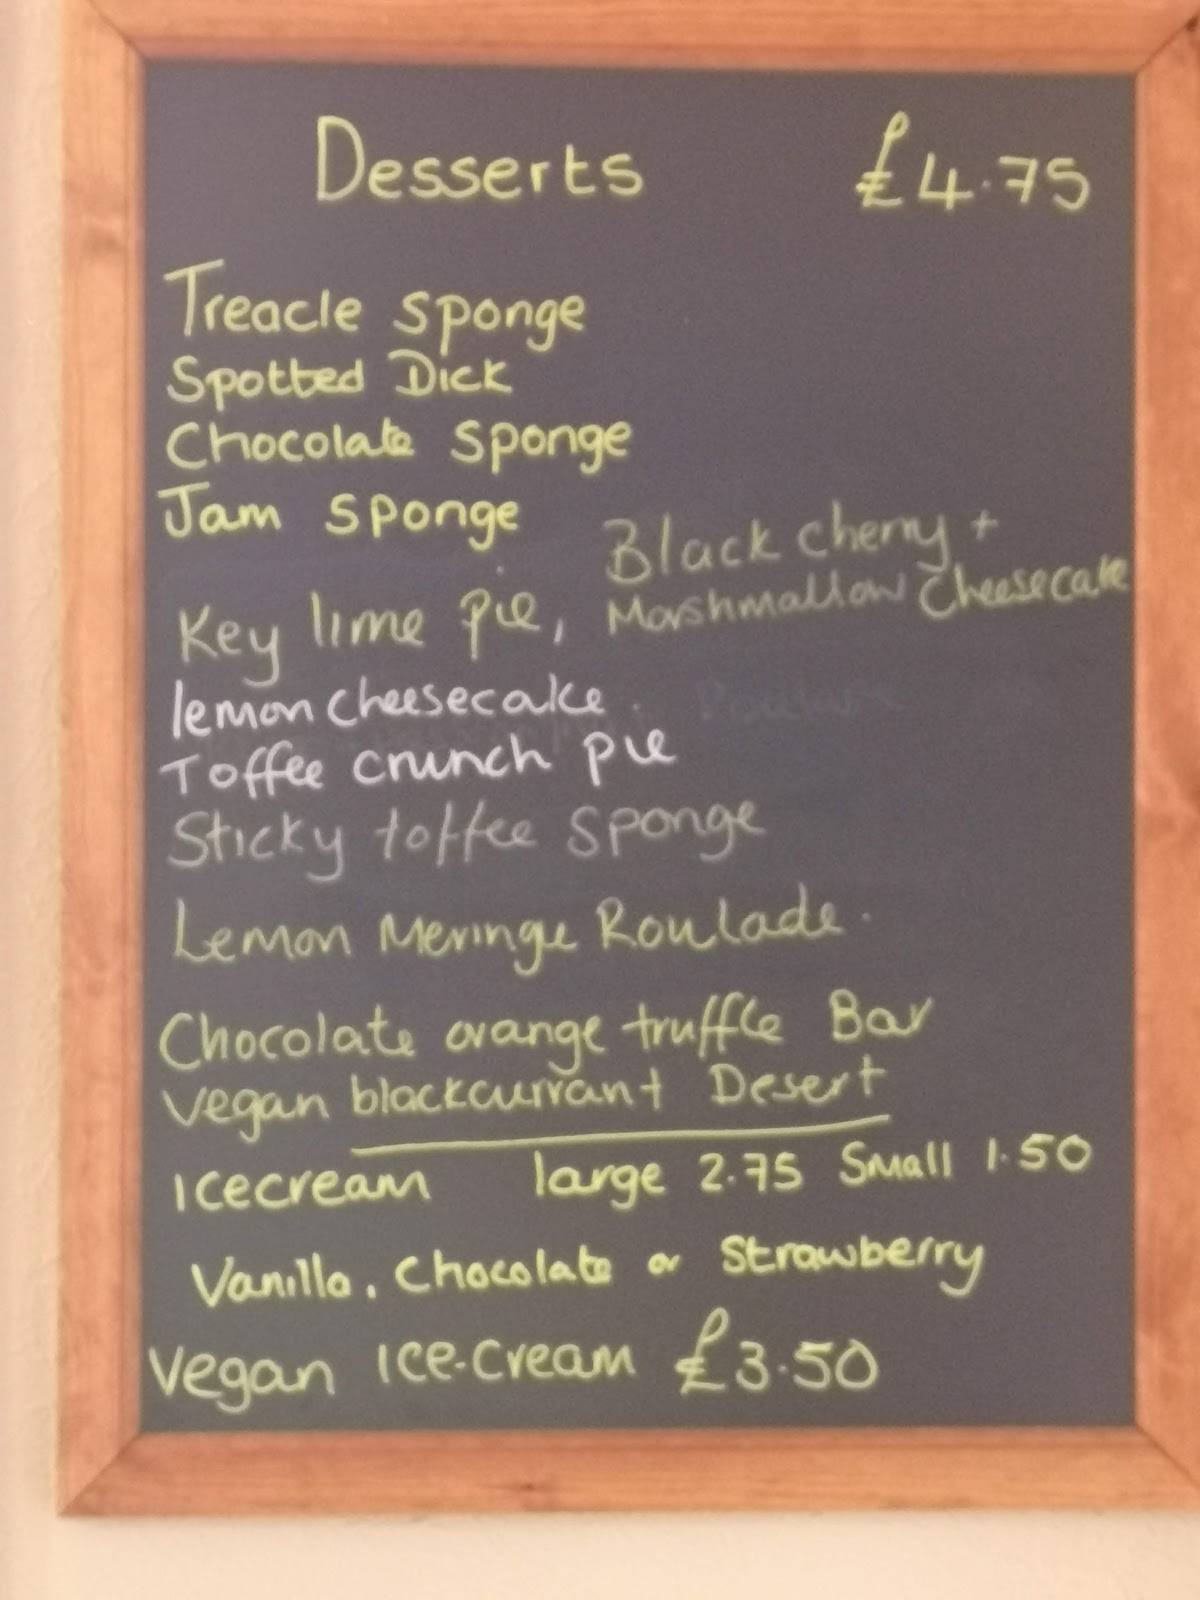 Desserts £4.75
Treacle sponge
Spotted Dick
Chocolate sponge
Jam sponge
Key lime pie, Black cherry +
Marshmallow Cheesecake
lemon cheesecake.
Toffee crunch pie
Sticky toffee sponge
Lemon Meringe Roulade.
Chocolate orange truffle Bar
Vegan blackcurrant Desert
Icecream large 2.75 Small 1.50
Vanilla, Chocolate or Strawberry
Vegan Ice-Cream £3.50